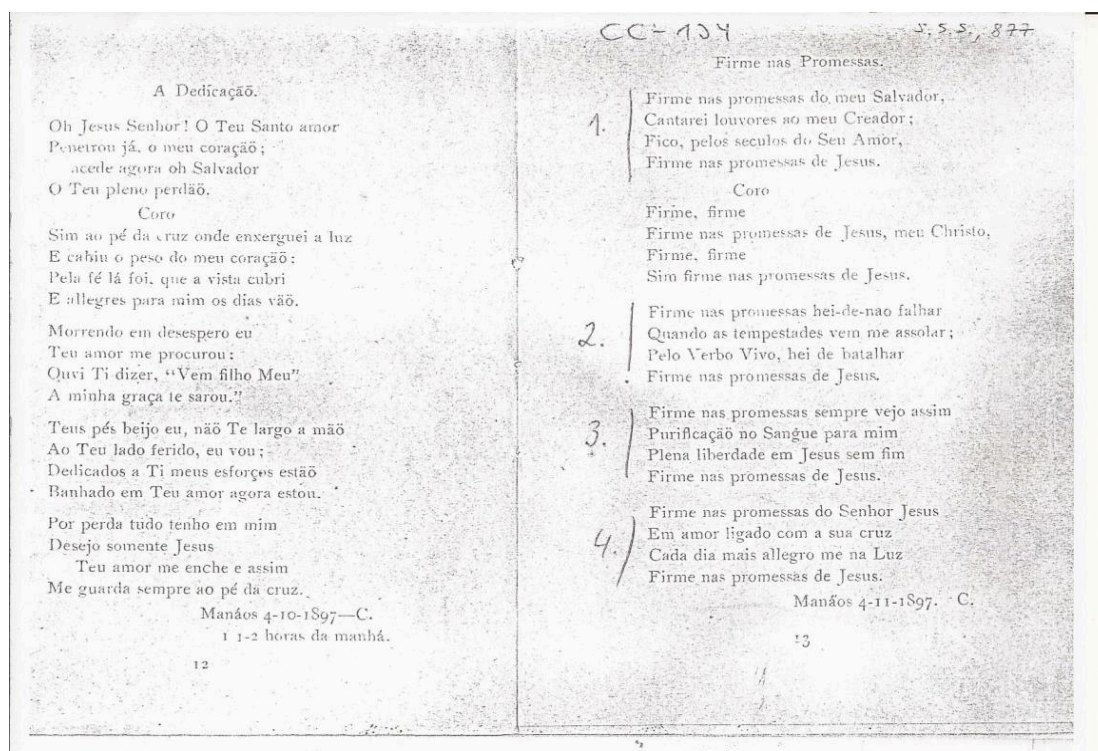 A Dedicaçaõ.
Oh Jesus Senhor! O Teu Santo amor
Penetrou já, o meu coraçaõ;
acede agora oh Salvador
O Teu pleno perdäõ.
Coro
Sim ao pé da cruz onde enxerguei a luz
E cahiu o peso do meu coraçaõ:
Pela fé lá foi, que a vista cubri
E allegres para mim os dias vaõ.
Morrendo em desespero eu
Teu amor me procurou:
Quvi Ti dizer, "Vem filho Meu"
A minha graça te sarou."
Teus pés beijo eu, näõ Te largo a mäõ
Ao Teu lado ferido, eu vou;
Dedicados a Ti meus esforços estäõ
Banhado em Teu amor agora estou.
Por perda tudo tenho em mim
Desejo somente Jesus
Teu amor me enche e assim
Me guarda sempre ao pé da cruz.
Manáos 4-10-1897—C.
1 1-2 horas da manhá.
12
CC-134
S.S.S., 877
Firme nas Promessas.
1.
Firme nas promessas do meu Salvador,
Cantarei louvores ao meu Creador;
Fico, pelos seculos do Seu Amor,
Firme nas promessas de Jesus.
Coro
Firme, firme
Firme nas promessas de Jesus, meu Christo,
Firme, firme
Sim firme nas promessas de Jesus.
2.
Firme nas promessas hei-de-nao falhar
Quando as tempestades vem me assolar;
Pelo Verbo Vivo, hei de batalhar
Firme nas promessas de Jesus.
3.
Firme nas promessas sempre vejo assim
Purificaçäõ no Sangue para mim
Plena liberdade em Jesus sem fim
Firme nas promessas de Jesus.
4.
Firme nas promessas do Senhor Jesus
Em amor ligado com a sua cruz
Cada dia mais allegro me na Luz
Firme nas promessas de Jesus.
Manáos 4-11-1897. C.
13